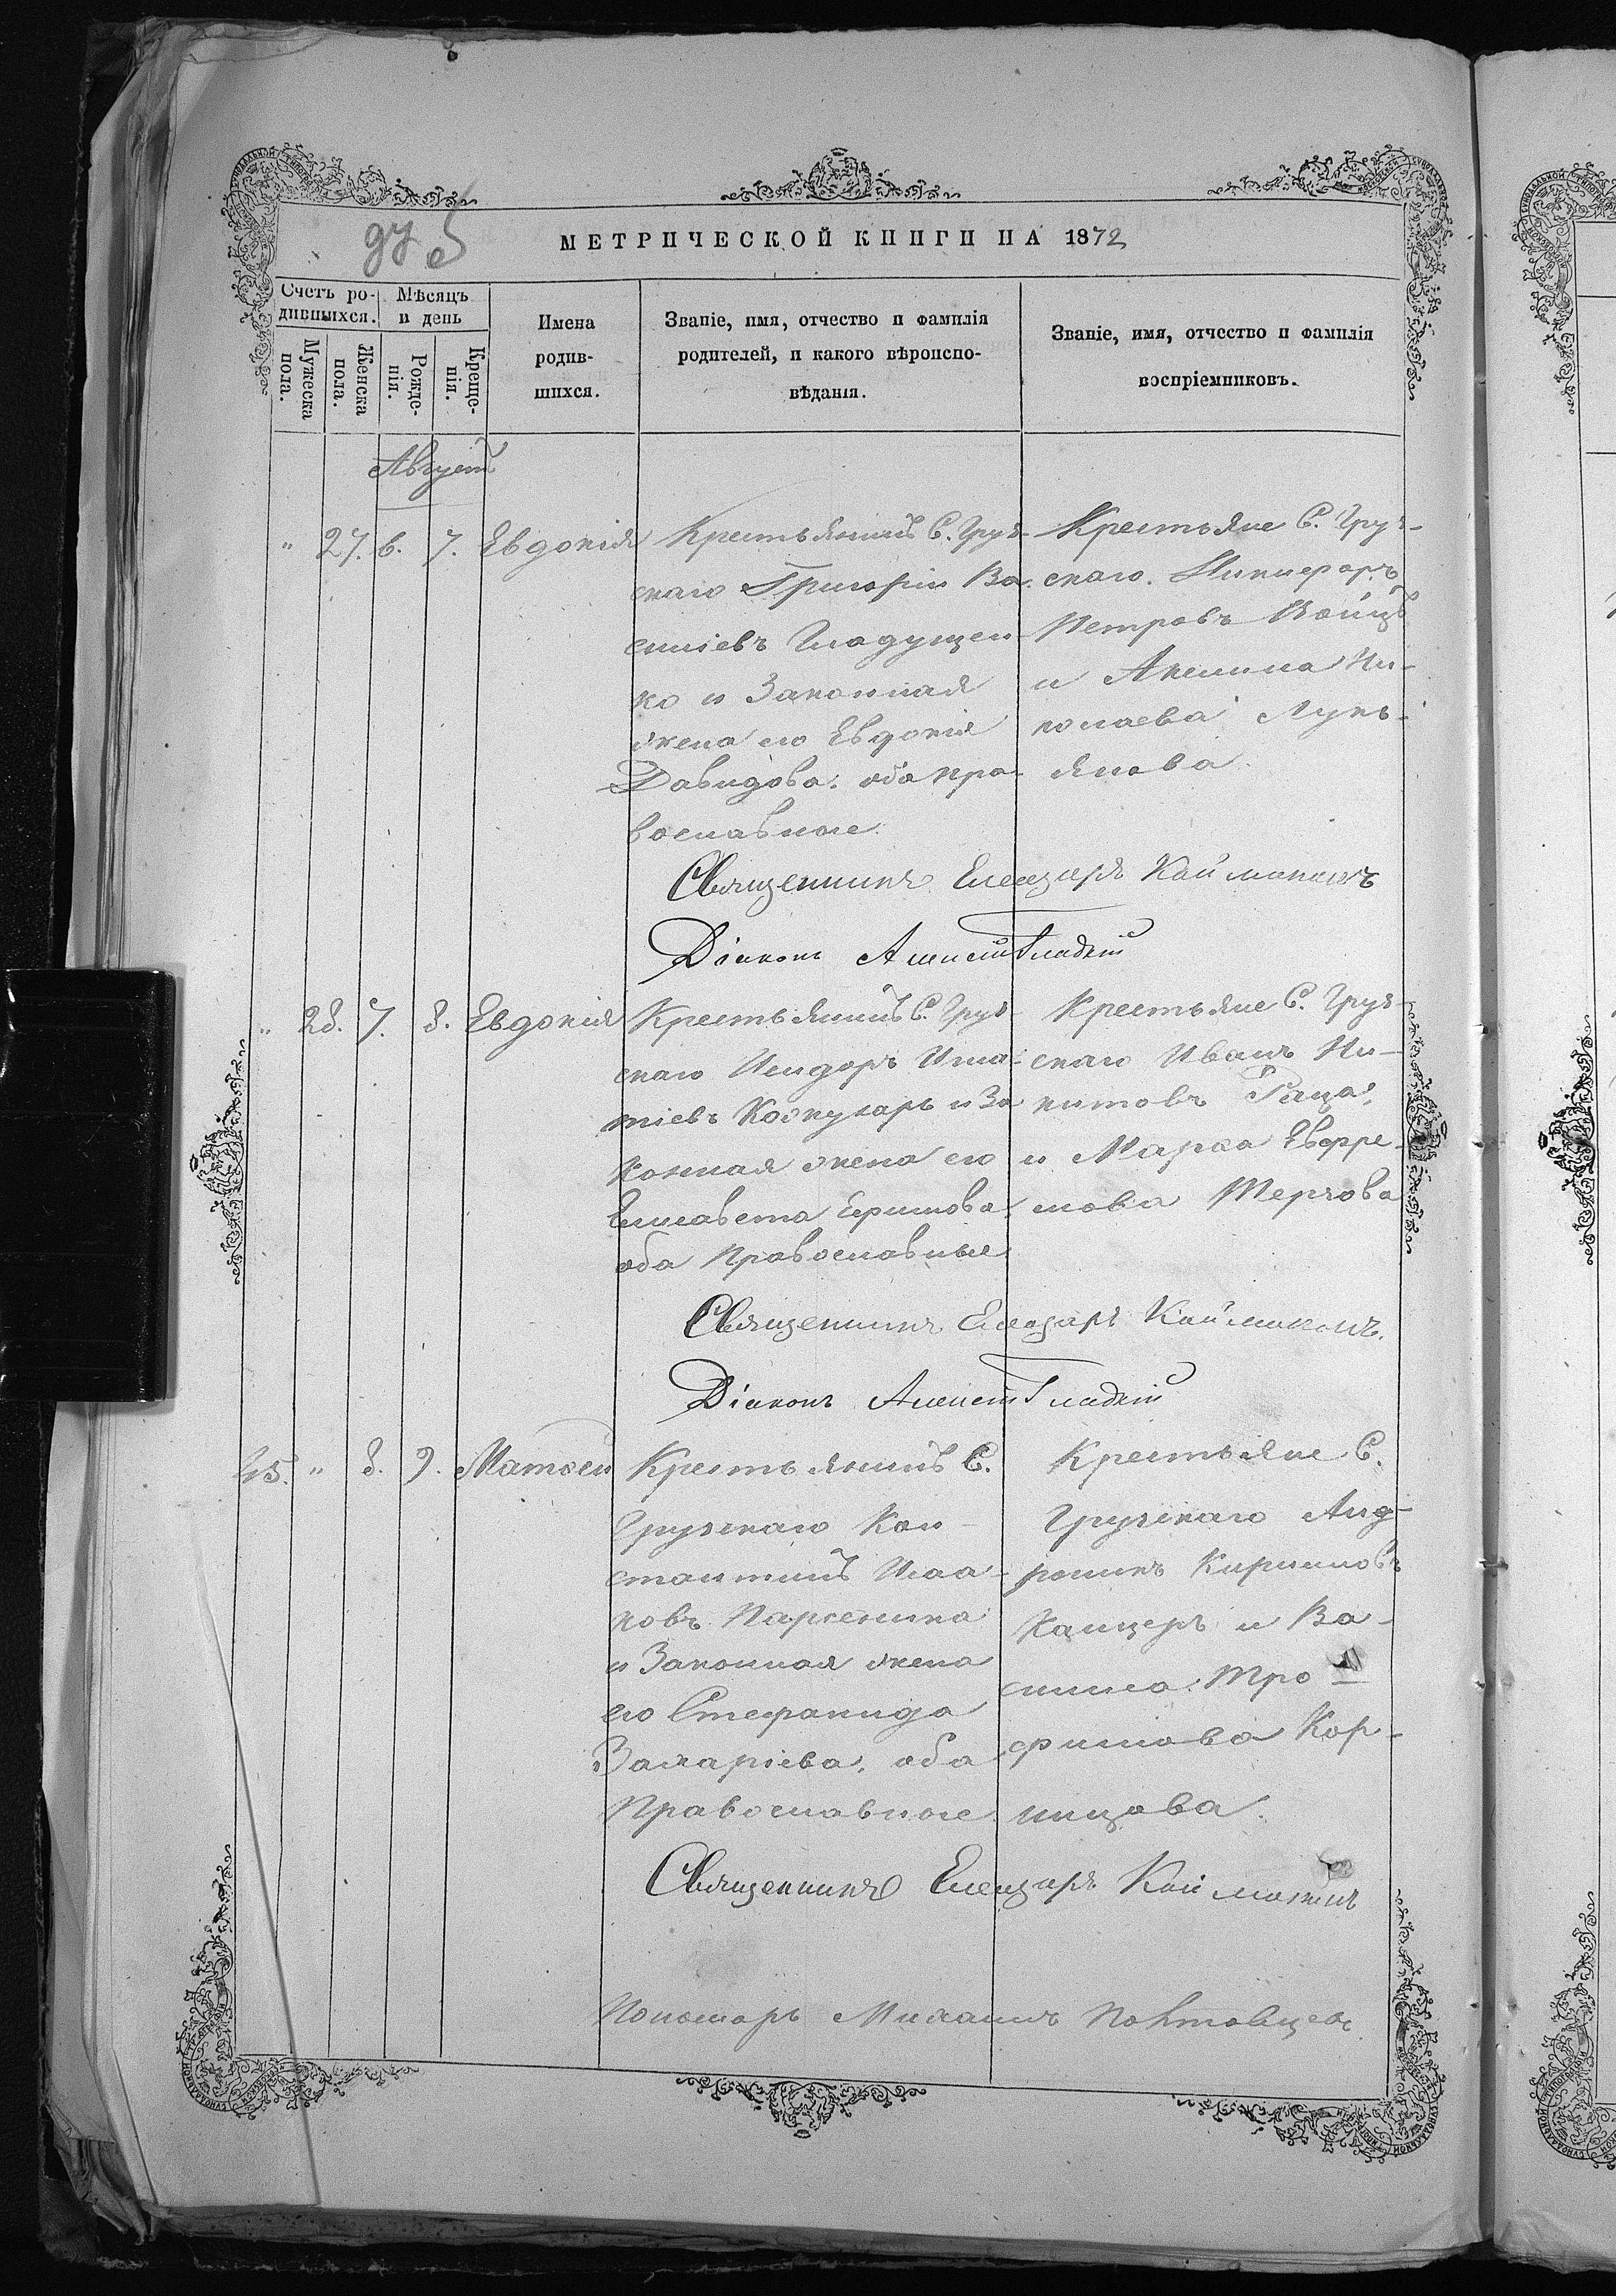 МЕТРИЧЕСКОЙ КНИГИ НА 1872
Счетъ ро-
дившихся.
Мѣсяцъ
и день
Мужеска
пола.
Женска
пола.
Рожде-
нія.
Креще-
нія.
Имена
родив-
шихся.
Званіе, имя, отчество и фамилія
родителей, и какого вѣроиспо-
вѣданія.
Званіе, имя, отчество и фамилія
воспріемниковъ.
Августъ
" 27. 6. 7. Евдокія
Крестьянинъ С. Груз-
скаго Григорій Ва-
силіевъ Гладущен-
ко и Законная
жена его Евдокія
Давидова. оба пра-
вославные
Крестьяне С. Груз-
скаго. Никифоръ
Петровъ
и Акилина Ни-
колаева Лукь-
янова
Священникъ Елеазаръ
Діаконъ
" 28. 7. 8. Евдокія
Крестьянинъ С. Груз-
скаго Исидоръ Игна-
тіевъ и За
конная жена его
Елисавета
оба Православные
Крестьяне С. Груз-
скаго Иванъ Ни-
китовъ
и Марѳа Евфре-
мова
Священникъ Елеазаръ
Діаконъ
45. " 8. 9. Матѳей
Крестьянинъ С.
Грузскаго Кон-
стантинъ Исаа-
ковъ
и Законная жена
его Стефанида
Захаріева, оба
Православные
Крестьяне С.
Грузскаго Анд-
роникъ Кирилловъ
и Ва-
силиса Тро-
фимова Кор-
ницова.
Священникъ Елеазаръ
Пономарь Михаилъ